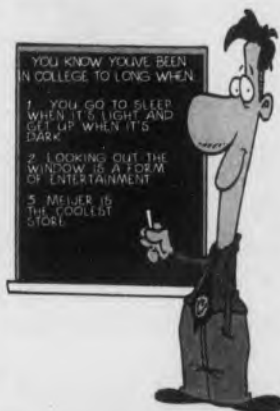 YOU KNOW YOUVE BEEN
IN COLLEGE TO LONG WHEN:
1. YOU GO TO SLEEP
WHEN IT'S LIGHT AND
GET UP WHEN IT'S
DARK
2. LOOKING OUT THE
WINDOW IS A FORM
OF ENTERTAINMENT
3. MEIJER IS
THE COOLEST
STORE